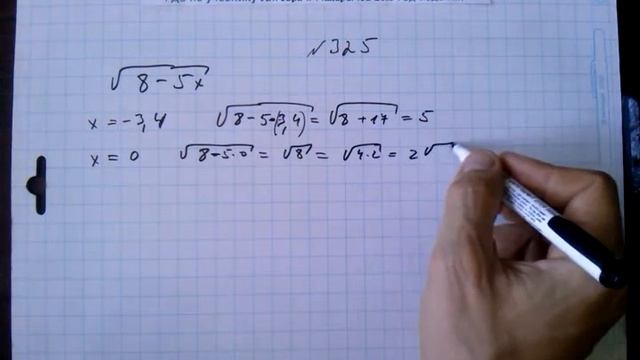 √325
√(8-5x)
x = -3,4 √(8-5·(-3,4)) = √(8+17) = 5
x = 0 √(8-5·0) = √8 = √(4·2) = 2√